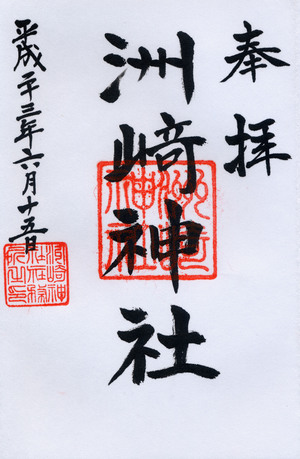 奉拝
洲﨑神社
平成二十三年六月十五日